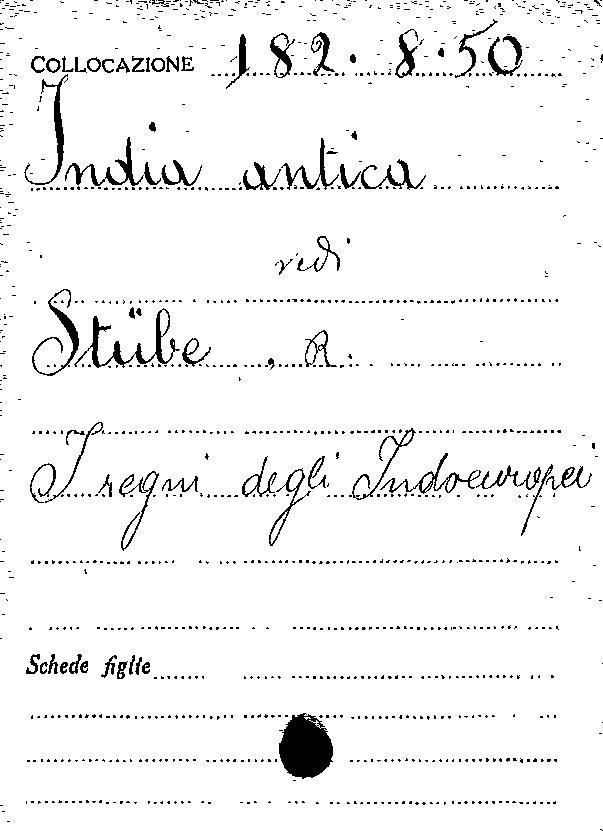 COLLOCAZIONE 182. 8.50
India antica
vedi
Stübe, R.
I regni degli Indoeuropei
Schede figlie